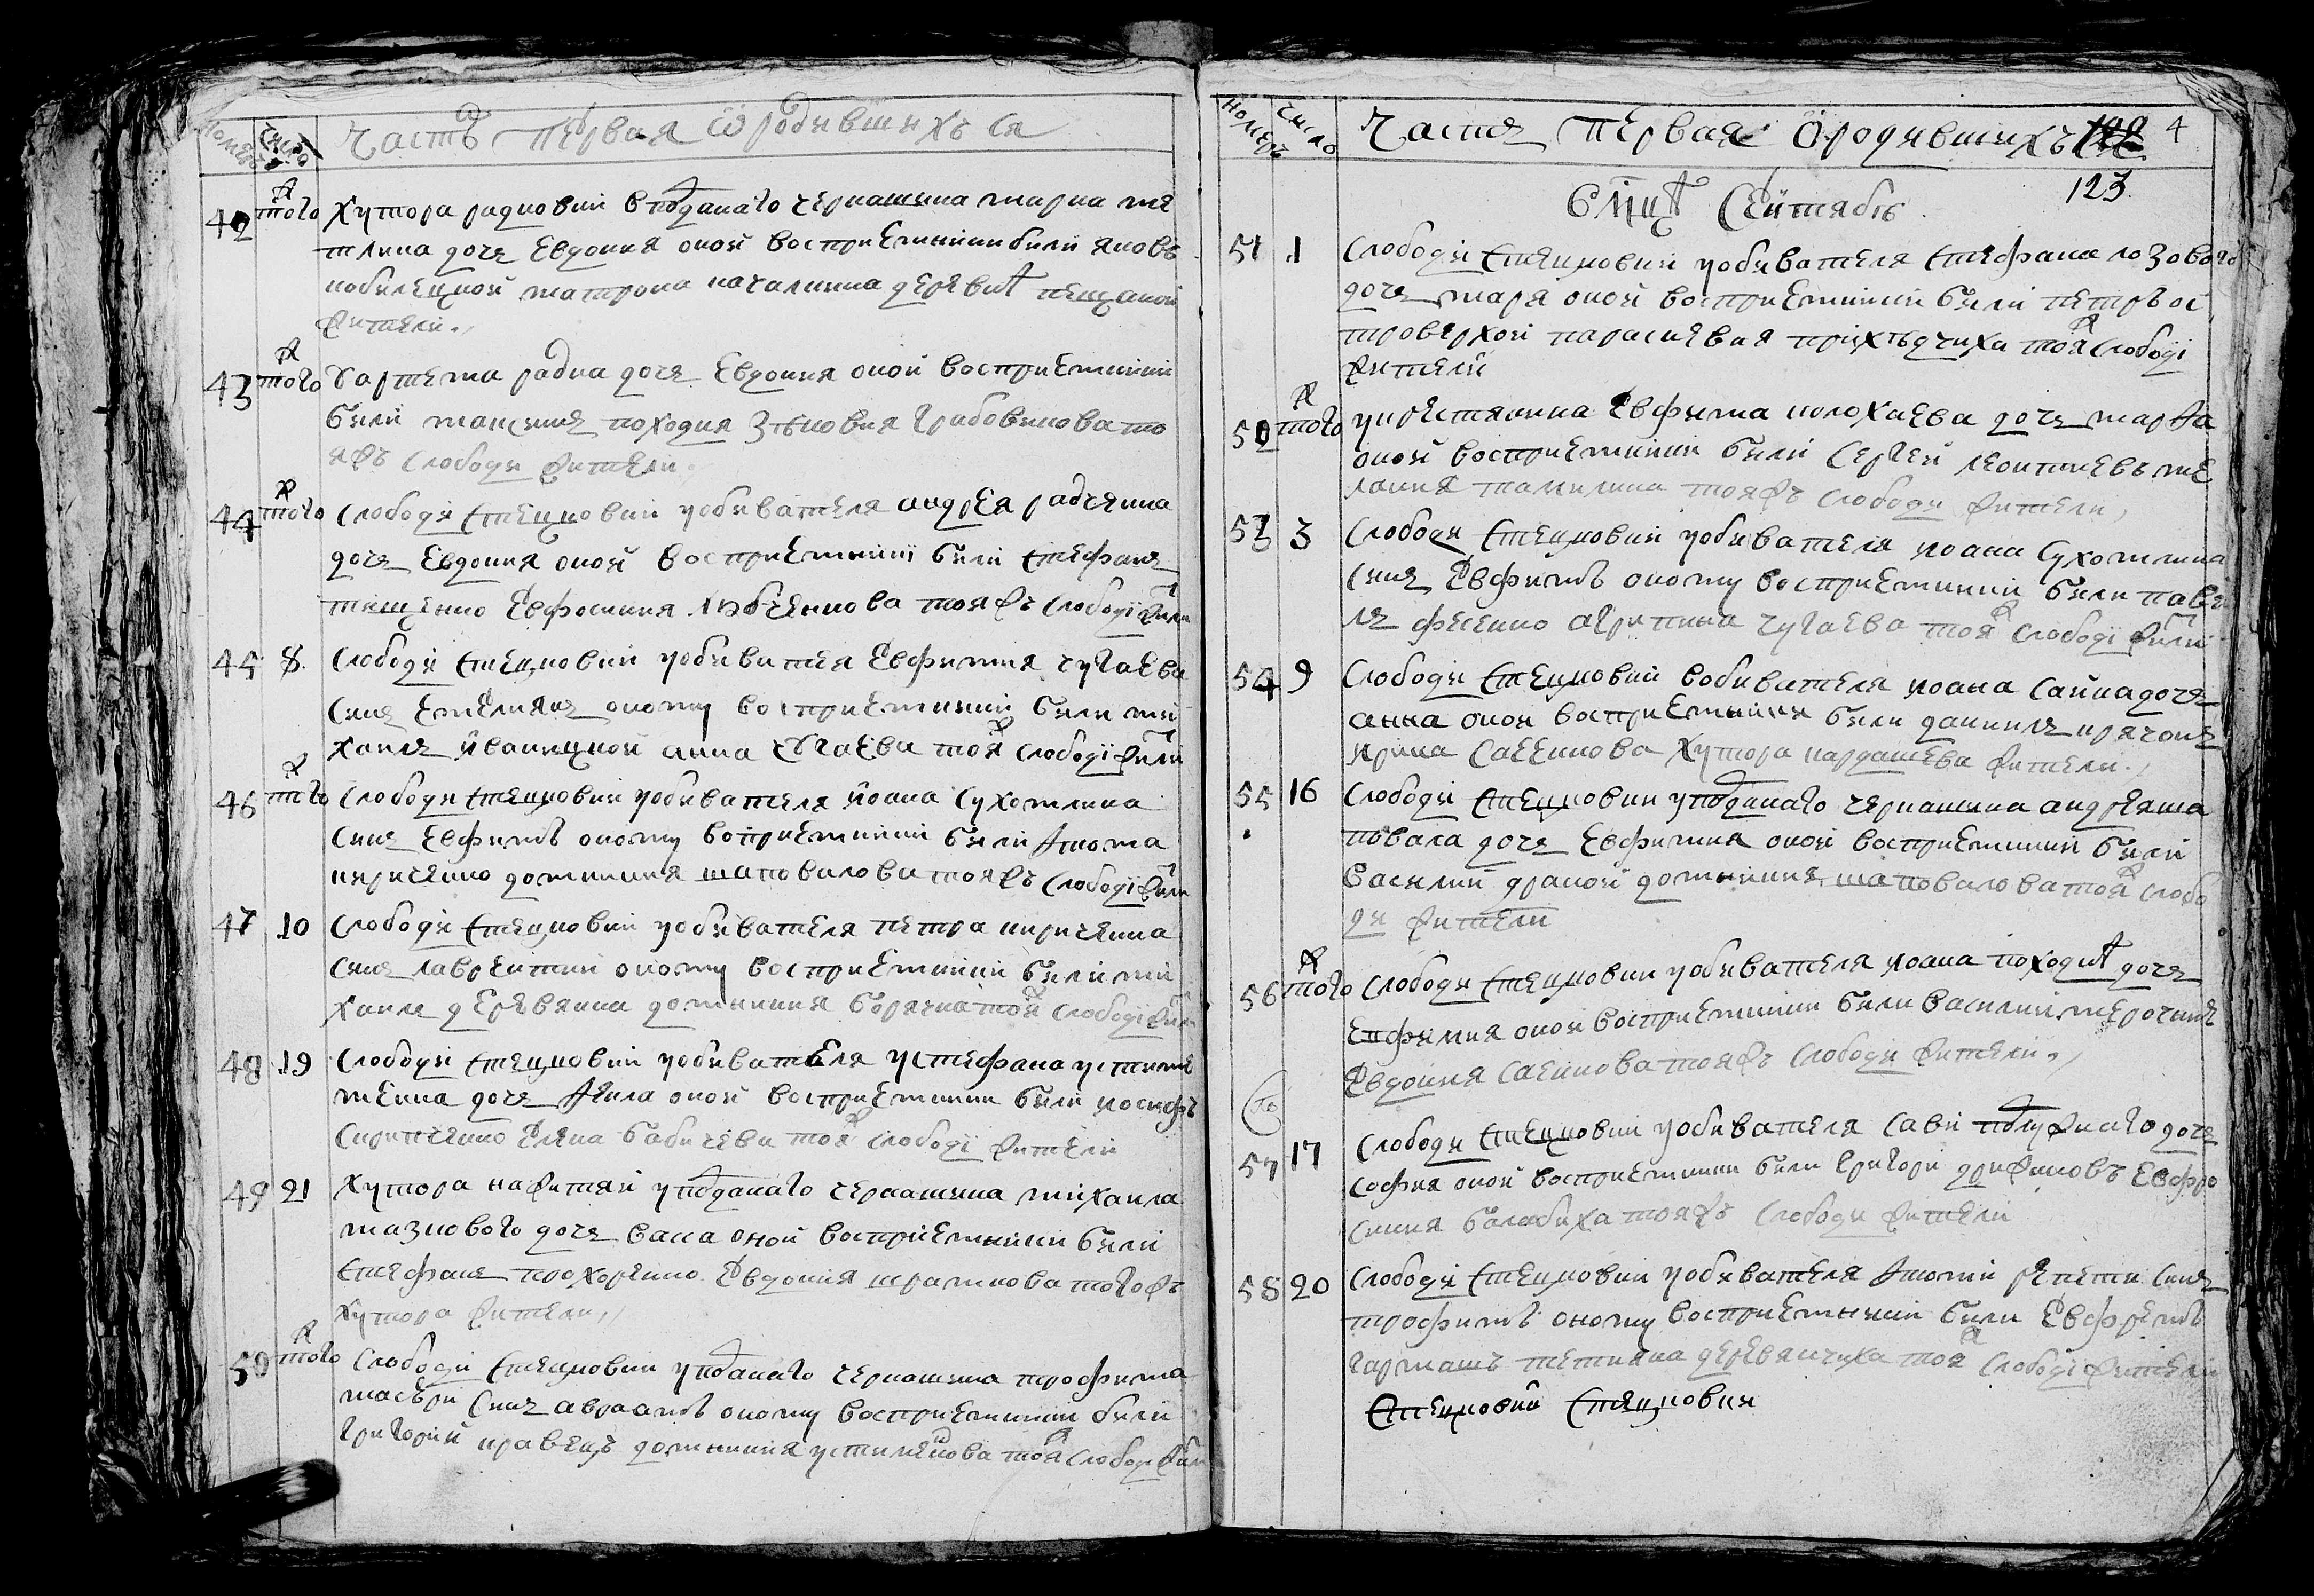 номеръ число Часть первая ѿ родившихъся
42 тогож хутора радковки в подданаго черкашина марка ме
тлика дочь Евдокия оной восприемники были яковъ
кобилецкой матрона качалкина деревни пещаной
жители.
43 тогож у артема радка дочь Евдокия оной восприемники
были максимъ походня зѣновия грибовикова то
яжъ слободи жители.
44 тогож слободи стецковки у обивателя андрея радченка
дочь Евдокия оной восприемники были стефанъ
тищенко Евфосиния любченкова тояжъ слободи жители
45 8. слободи стецковки у обивателя Евфимия чугаева
синъ Емелиянъ оному восприемники были ми
хаилъ иваницкой анна чугаева тояж слободи жители
46 тогож слободи стецковки у обивателя иоана сухотина
синъ Евфимъ оному восприемники были фома
кириченко домникия шаповалова тояжъ слободи жители
47 10 слободи стецковки у обивателя петра кириченка
синъ лаврентий оному восприемники были ми
хаилъ деревянка домникия борячка тояж слободи жители
48 19 слободи стецковки у обивателя у стефана устиме
менка дочь фекла оной восприемники были иосифъ
скрипченко Елена бабичева тояж слободи жители
49 21 хутора нажитяй у подданаго черкашина михаила
мазкового дочь васса оной восприемники были
стефанъ прохоренко Евдокия шрамкова тогожъ
хутора жители,
50 тогож слободи стецковки у подданаго черкашина трофима
масѣри синъ авраамъ оному восприемники были
григорий кравецъ домникия устименкова тояж слободи жители
номеръ число Часть первая о родившихъся 4
123.
Мцъ Сентябрь.
51 1 слободи стецковки у обивателя стефана лозового
дочь маря оной восприемники били петръ ос
троверхой параскевия прихѣдчиха тояж слободи
жители
52 тогож у крестянина Евфима колохаева дочь марфа
оной восприемники били сергей леонтиевъ ме
лания томилина тояжъ слободи жители,
53 3 слободи стецковки у обивателя иоана сухомлина
синъ Евфимъ оному восприемники били паве
лъ фесенко агрипина чугаева тояж слободи жители
54 9 слободи стецковки в обивателя иоана сайка дочь
анна оной восприемники били данилъ крячокъ
ирина саенкова хутора кардашева жители.
55 16 слободи стецковки у подданаго черкашина андрея ша
повала дочь Евфимия оной восприемники били
василий драной домникия шаповалова тояж слобо
ди жители
56 тогож слободи стецковки у обивателя иоана походни дочь
Евфимия оной восприемники били василий мерочникъ
Евдокия саенкова тояжъ слободи жители.
57 17 слободи стецковки у обивателя сави полужнаго дочь
софия оной восприемники били григори дрижиковъ Евфро
синия балабиха тояжъ слободи жители
58 20 слободи стецковки у обивателя фоми репети синъ
трофимъ оному восприемники били Евфремъ
гармашъ тетияна деревянчиха тояж слободи жители
стецковки стецковки